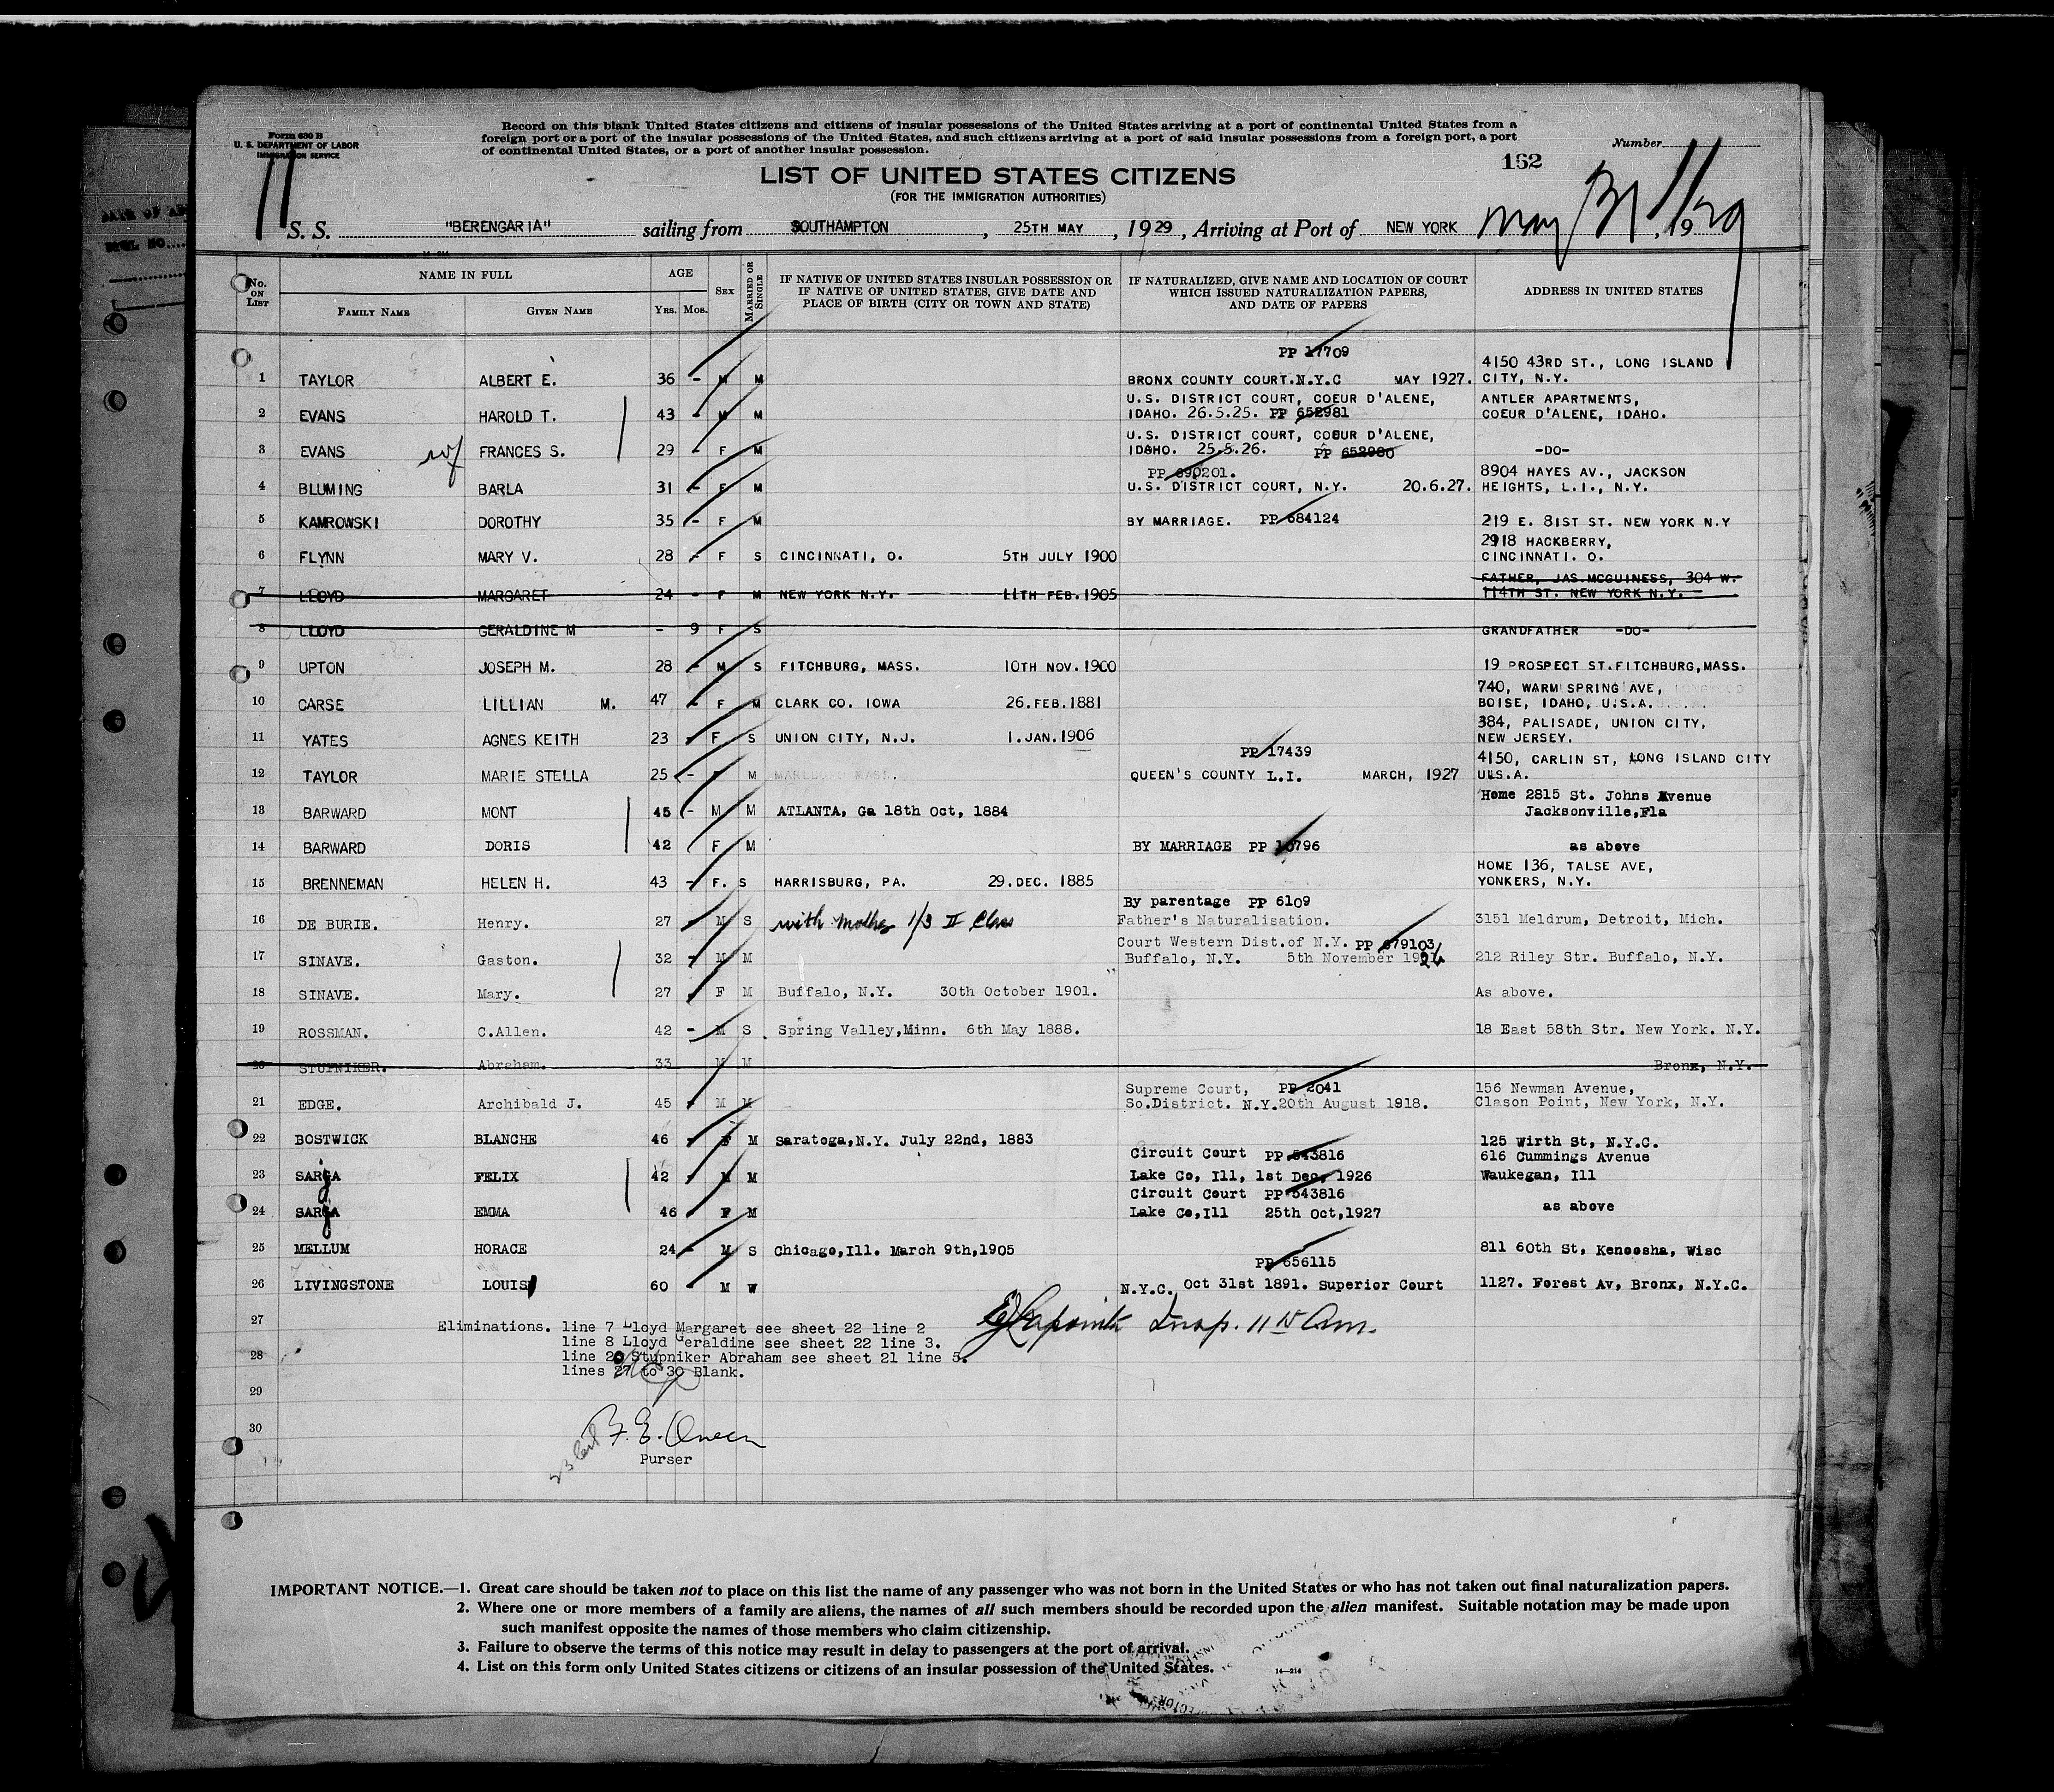 Form 630 B
U. S. DEPARTMENT OF LABOR
IMMIGRATION SERVICE
Record on this blank United States citizens and citizens of insular possessions of the United States arriving at a port of continental United States from a
foreign port or a port of the insular possessions of the United States, and such citizens arriving at a port of said insular possessions from a foreign port, a port
of continental United States, or a port of another insular possession.
Number
162
LIST OF UNITED STATES CITIZENS
(FOR THE IMMIGRATION AUTHORITIES)
S. S. "BERENGARIA" sailing from SOUTHAMPTON, 25TH MAY, 1929, Arriving at Port of NEW YORK May 31, 1929
No. ON LIST NAME IN FULL AGE SEX MARRIED OR SINGLE IF NATIVE OF UNITED STATES INSULAR POSSESSION OR IF NATIVE OF UNITED STATES, GIVE DATE AND PLACE OF BIRTH (CITY OR TOWN AND STATE) IF NATURALIZED, GIVE NAME AND LOCATION OF COURT WHICH ISSUED NATURALIZATION PAPERS, AND DATE OF PAPERS ADDRESS IN UNITED STATES
FAMILY NAME GIVEN NAME YRS. MOS.
PP 17709
4150 43RD ST., LONG ISLAND
1 TAYLOR ALBERT E. 36 - M M BRONX COUNTY COURT.N.Y.C MAY 1927. CITY, N.Y.
U.S. DISTRICT COURT, COEUR D'ALENE, ANTLER APARTMENTS,
2 EVANS HAROLD T. 43 - M M IDAHO. 26.5.25. PP 652981 COEUR D'ALENE, IDAHO.
U.S. DISTRICT COURT, COEUR D'ALENE,
3 EVANS wf FRANCES S. 29 - F M IDAHO. 25.5.26. PP 652980 -DO-
PP 690201. 8904 HAYES AV., JACKSON
4 BLUMING BARLA 31 - F M U.S. DISTRICT COURT, N.Y. 20.6.27. HEIGHTS, L.I., N.Y.
5 KAMROWSKI DOROTHY 35 - F M BY MARRIAGE. PP 684124 219 E. 81ST ST. NEW YORK N.Y
2918 HACKBERRY,
6 FLYNN MARY V. 28 - F S CINCINNATI, O. 5TH JULY 1900 CINCINNATI. O.
FATHER, JAS.MCGUINESS, 304 W.
7 LLOYD MARGARET 24 - F M NEW YORK N.Y. 11TH FEB.1905 114TH ST. NEW YORK N.Y.
8 LLOYD GERALDINE M - 9 F S GRANDFATHER -DO-
9 UPTON JOSEPH M. 28 - M S FITCHBURG, MASS. 10TH NOV.1900 19 PROSPECT ST.FITCHBURG,MASS.
740, WARM SPRING AVE,
10 CARSE LILLIAN M. 47 - F M CLARK CO. IOWA 26.FEB.1881 BOISE, IDAHO, U.S.A.
384, PALISADE, UNION CITY,
11 YATES AGNES KEITH 23 - F S UNION CITY, N.J. 1.JAN.1906 NEW JERSEY.
PP 17439 4150, CARLIN ST, LONG ISLAND CITY
12 TAYLOR MARIE STELLA 25 - F M QUEEN'S COUNTY L.I. MARCH, 1927 U.S.A.
Home 2815 St. Johns Avenue
13 BARWARD MONT 45 - M M ATLANTA, Ga 18th Oct, 1884 Jacksonville,Fla
14 BARWARD DORIS 42 F M BY MARRIAGE PP 10796 as above
HOME 136, TALSE AVE,
15 BRENNEMAN HELEN H. 43 - F. S HARRISBURG, PA. 29.DEC. 1885 YONKERS, N.Y.
By parentage PP 6109
16 DE BURIE. Henry. 27 - M S with mother 1/3 II Class Father's Naturalisation. 3151 Meldrum, Detroit, Mich.
Court Western Dist.of N.Y. PP 679103
17 SINAVE. Gaston. 32 - M M Buffalo, N.Y. 5th November 1926 212 Riley Str. Buffalo, N.Y.
18 SINAVE. Mary. 27 - F M Buffalo, N.Y. 30th October 1901. As above.
19 ROSSMAN. C.Allen. 42 - M S Spring Valley,Minn. 6th May 1888. 18 East 58th Str. New York. N.Y.
20 STUPNIKER. Abraham. 33 M M Bronx, N.Y.
Supreme Court, PP 2041 156 Newman Avenue,
21 EDGE. Archibald J. 45 - M M So.District. N.Y.20th August 1918. Clason Point, New York, N.Y.
22 BOSTWICK BLANCHE 46 - F M Saratoga,N.Y. July 22nd, 1883 125 Wirth St, N.Y.C.
Circuit Court PP 543816 616 Cummings Avenue
23 SARJA FELIX 42 - M M Lake Co, Ill, 1st Dec, 1926 Waukegan, Ill
Circuit Court PP 543816
24 SARJA EMMA 46 - F M Lake Co,Ill 25th Oct,1927 as above
25 MELLUM HORACE 24 - M S Chicago,Ill. March 9th,1905 811 60th St, Kenosha, Wisc
PP 656115
26 LIVINGSTONE LOUIS 60 - M W N.Y.C. Oct 31st 1891. Superior Court 1127. Forest Av, Bronx, N.Y.C.
27
Eliminations. line 7 Lloyd Margaret see sheet 22 line 2
line 8 Lloyd Geraldine see sheet 22 line 3.
28 line 20 Stupniker Abraham see sheet 21 line 5.
lines 27 to 30 Blank.
Insp. 11 15 Am.
29
30
Purser
IMPORTANT NOTICE.—1. Great care should be taken not to place on this list the name of any passenger who was not born in the United States or who has not taken out final naturalization papers.
2. Where one or more members of a family are aliens, the names of all such members should be recorded upon the alien manifest. Suitable notation may be made upon
such manifest opposite the names of those members who claim citizenship.
3. Failure to observe the terms of this notice may result in delay to passengers at the port of arrival.
4. List on this form only United States citizens or citizens of an insular possession of the United States.
14—214